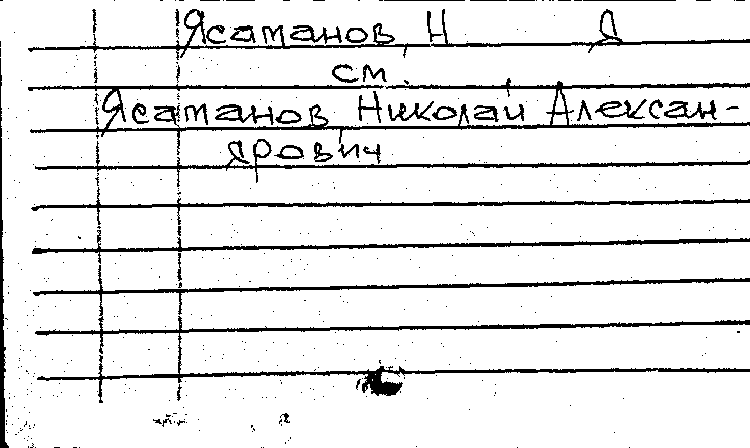 Ясатанов, Н Я
см.
Ясатанов Николай Алексан-
ярович